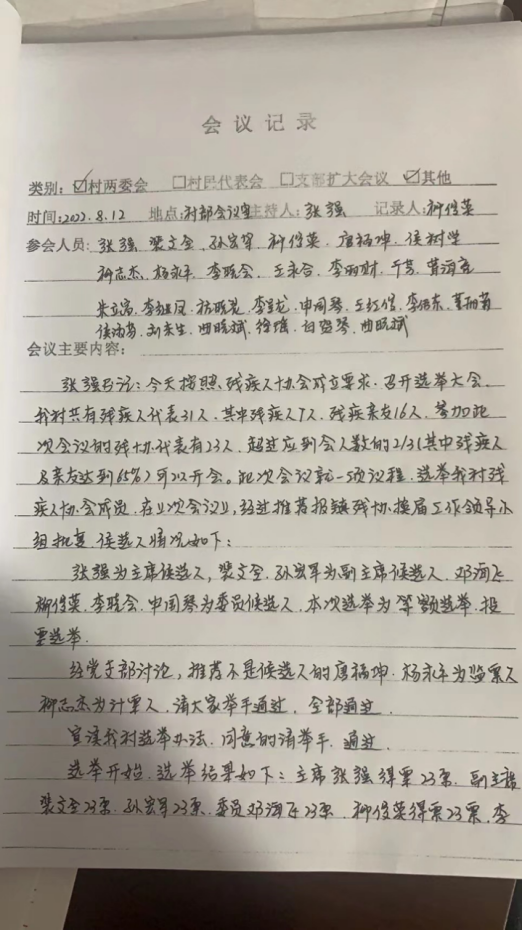 会议记录
类别：☑村两委会 □村民代表会 □支部扩大会议 ☑其他
时间：2022.8.12 地点：村部会议室 主持人：张强 记录人：柳俊英
参会人员：张强 裴文全 孙宏军 柳俊英 唐福坤 侯树生
柳志杰 杨永平 李晓会 王永合 李丽财
朱立富 李继凤 申国琴 王红
会议主要内容：
张强书记：今天按照残疾人协会成立要求，召开选举大会。
我村共有残疾人代表31人，其中残疾人7人，残疾亲友16人，参加此
次会议的残协代表有23人，超过应到会人数的2/3（其中残疾人
及亲友达到65%）可以开会。此次会议就一项议程，选举我村残
疾人协会成员，在以次会议以，经过推荐报镇残协换届工作领导小
组批复，侯选人情况如下：
张强为主席侯选人，裴文全、孙宏军为副主席侯选人，邓海飞
柳俊英、李晓会、申国琴为委员侯选人，本次选举为等额选举，投
票选举。
经党支部讨论，推荐不是侯选人的唐福坤、杨永平为监票人
柳志杰为计票人，请大家举手通过，全部通过。
宣读我村选举办法，同意的请举手，通过。
选举开始，选举结果如下：主席张强得票23票，副主席
裴文全23票，孙宏军23票，委员邓海飞23票，柳俊英得票23票，李